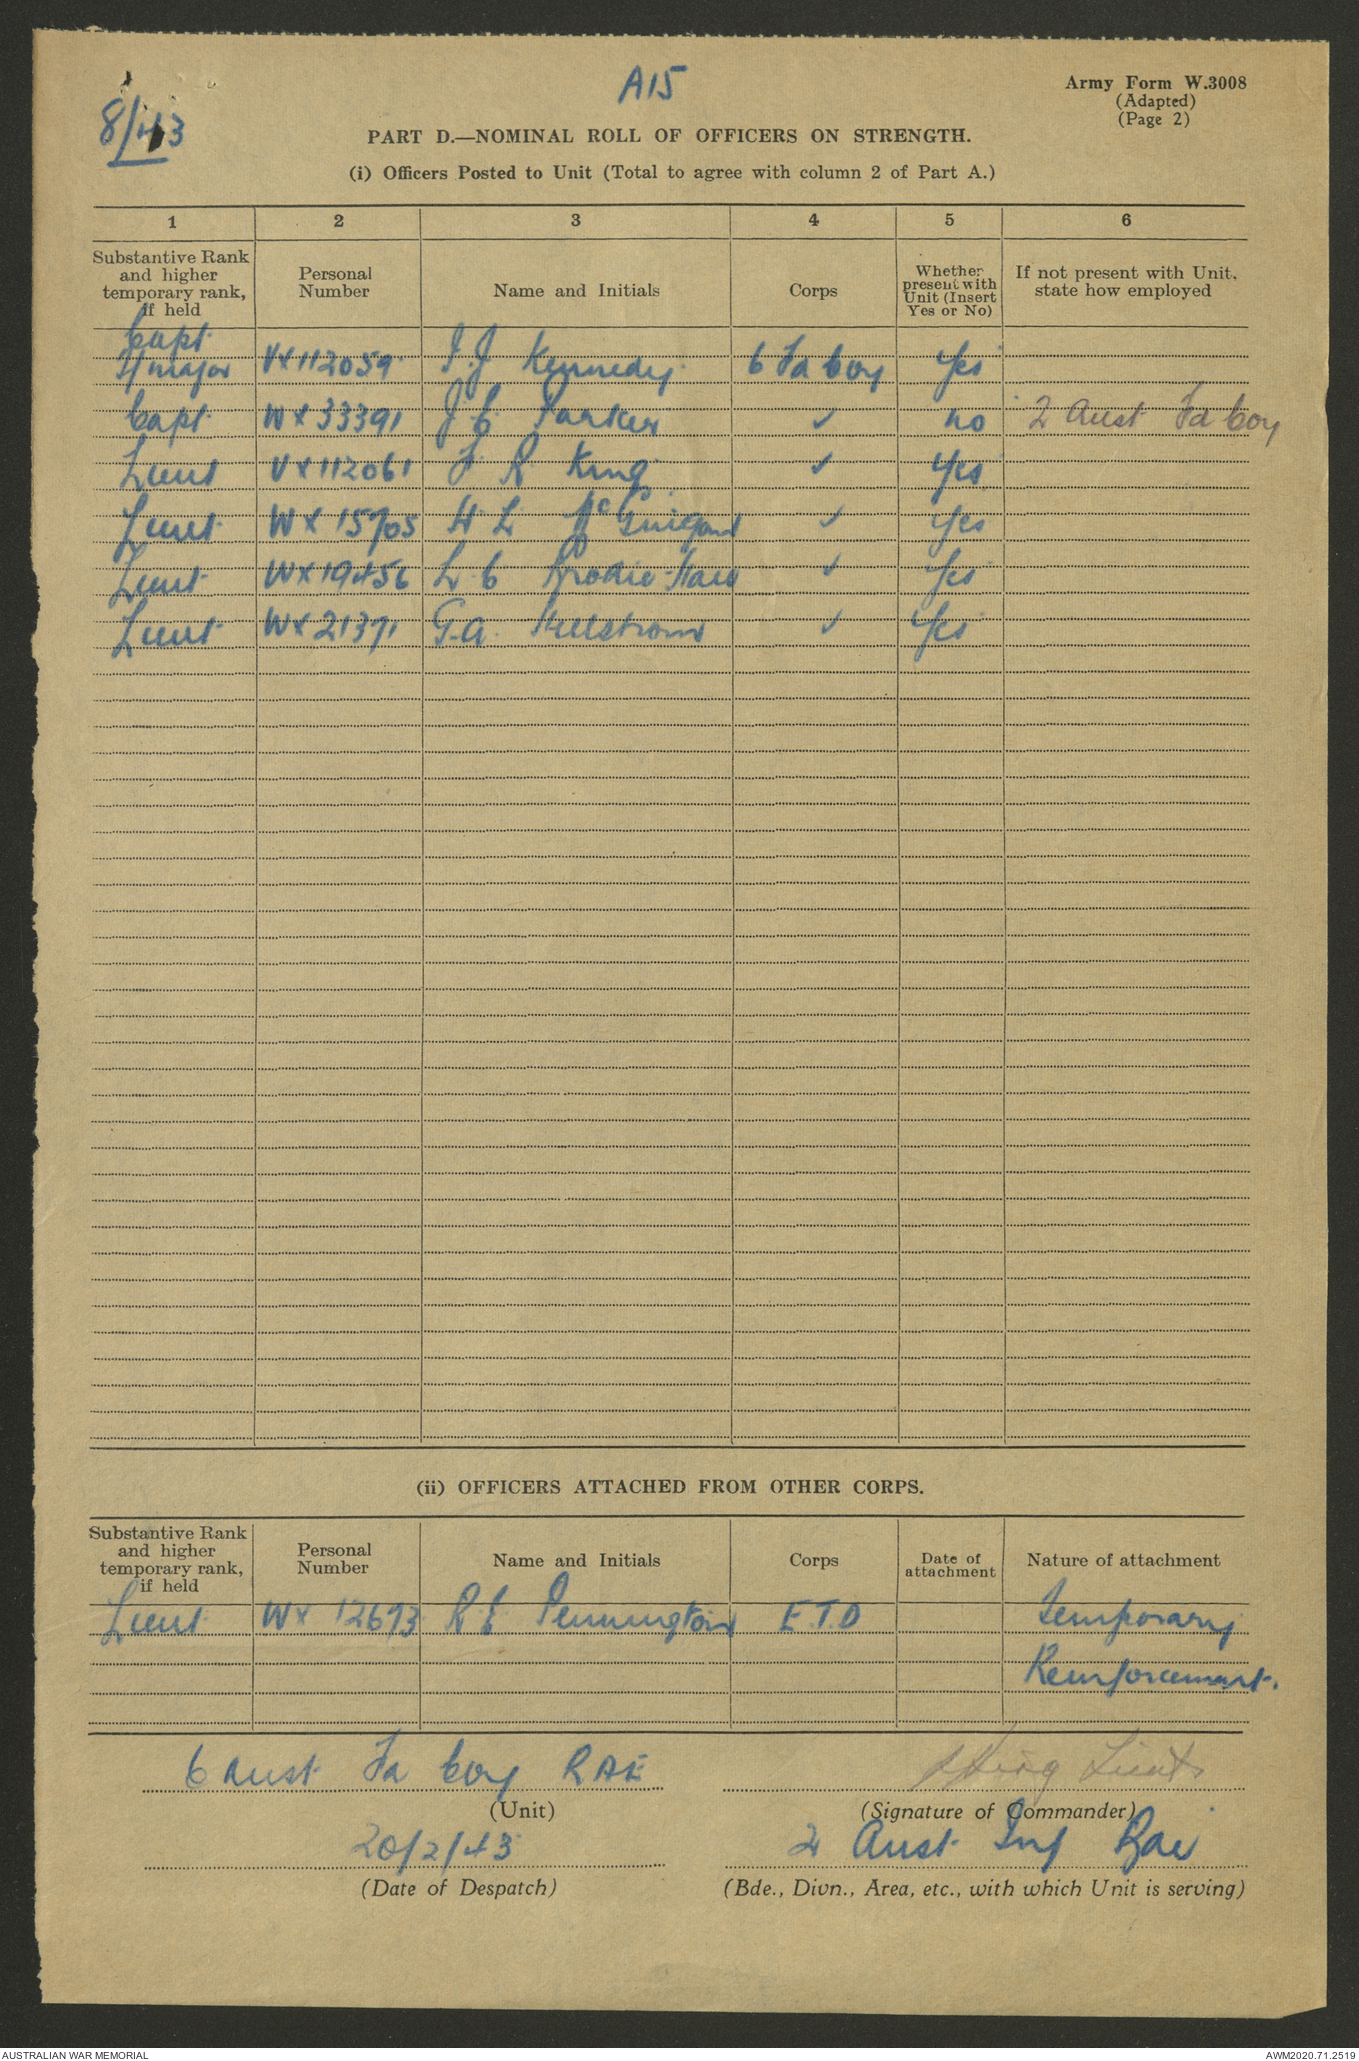 A15
8/43
Army Form W.3008
(Adapted)
(Page 2)
PART D.—NOMINAL ROLL OF OFFICERS ON STRENGTH.
(i) Officers Posted to Unit (Total to agree with column 2 of Part A.)
1 2 3 4 5 6
Substantive Rank and higher temporary rank, if held Personal Number Name and Initials Corps Whether present with Unit (Insert Yes or No) If not present with Unit, state how employed
Capt
T/Major VX112059 J. Kennedy 6 Fd Coy Yes
Capt WX33391 J C Parker ✓ no 2 Aust Fd Coy
Lieut VX112061 R King ✓ Yes
Lieut WX15705 H L McGuigan ✓ Yes
Lieut WX19456 L C Brodie-Hall ✓ Yes
Lieut WX21371 G.A. Hellstrom ✓ Yes
(ii) OFFICERS ATTACHED FROM OTHER CORPS.
Substantive Rank and higher temporary rank, if held Personal Number Name and Initials Corps Date of attachment Nature of attachment
Lieut WX 12673 R E Pennington E.T.D Temporary
Reinforcement.
6 Aust Fd Coy RAE King Lieut
(Unit) (Signature of Commander)
20/2/43 2 Aust Inf Bde
(Date of Despatch) (Bde., Divn., Area, etc., with which Unit is serving)
AUSTRALIAN WAR MEMORIAL AWM2020.71.2519